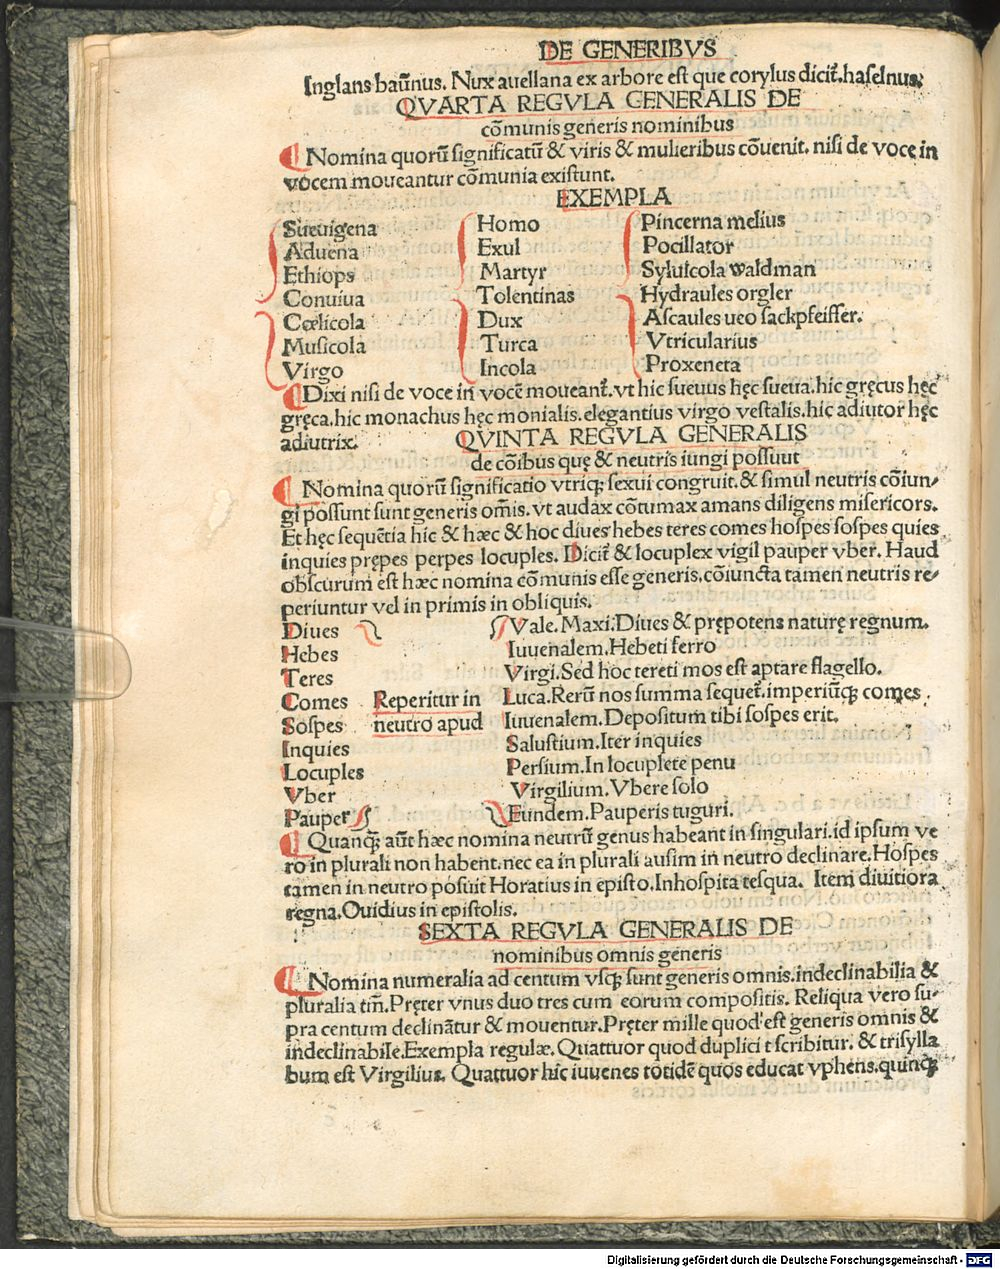 DE GENERIBVS
Inglans baũnus. Nux auellana ex arbore est que corylus dicit̃. haselnus.
QVARTA REGVLA GENERALIS DE
cõmunis generis nominibus
Nomina quorũ significatũ & viris & mulieribus cõuenit. nisi de voce in
vocem moueantur cõmunia existunt.
EXEMPLA
Sueuigena Homo Pincerna melius
Aduena Exul Pocillator
Ethiops Martyr Syluicola waldman
Conuiua Tolentinas Hydraules orgler
Cœlicola Dux Ascaules ueo sackpfeiffer.
Musicola Turca Vtricularius
Virgo Incola Proxeneta
Dixi nisi de voce in vocẽ moueant̃. vt hic sueuus hęc sueua. hic gręcus hęc
gręca. hic monachus hęc monialis. elegantius virgo vestalis. hic adiutor hęc
adiutrix. QVINTA REGVLA GENERALIS
de cõibus quę & neutris iungi possuut
Nomina quorũ significatio vtriqȝ sexui congruit. & simul neutris cõiun-
gi possunt sunt generis om̃is. vt audax cõtumax amans diligens misericors.
Et hęc sequẽtia hic & hæc & hoc diues hebes teres comes hospes sospes quies
inquies prępes perpes locuples. Dicit̃ & locuplex vigil pauper vber. Haud
obscurum est hæc nomina cõmunis esse generis, cõiuncta tamen neutris re-
periuntur vel in primis in obliquis.
Diues Vale. Maxi. Diues & prępotens naturę regnum.
Hebes Iuuenalem. Hebeti ferro
Teres Virgi. Sed hoc tereti mos est aptare flagello.
Comes Reperitur in Luca. Rerũ nos summa sequet̃. imperiũqȝ comes.
Sospes neutro apud Iuuenalem. Depositum tibi sospes erit.
Inquies Salustium. Iter inquies
Locuples Persium. In locuplete penu
Vber Virgilium. Vbere solo
Pauper Eundem. Pauperis tuguri.
Quanqȝ̃ aũt hæc nomina neutrũ genus habeant in singulari. id ipsum ve
ro in plurali non habent. nec ea in plurali ausim in neutro declinare. Hospes
tamen in neutro posuit Horatius in episto. Inhospita tesqua. Item diuitiora
regna. Ouidius in epistolis.
SEXTA REGVLA GENERALIS DE
nominibus omnis generis
Nomina numeralia ad centum vsqȝ sunt generis omnis. indeclinabilia &
pluralia tm̃. Pręter vnus duo tres cum eorum compositis. Reliqua vero su-
pra centum declinãtur & mouentur. Pręter mille quod est generis omnis &
indeclinabile. Exempla regulæ. Quattuor quod duplici t scribitur. & trisylla
bum est Virgilius. Quattuor hic iuuenes totidẽ quos educat vphens. quinqȝ
Digitalisierung gefördert durch die Deutsche Forschungsgemeinschaft - DFG